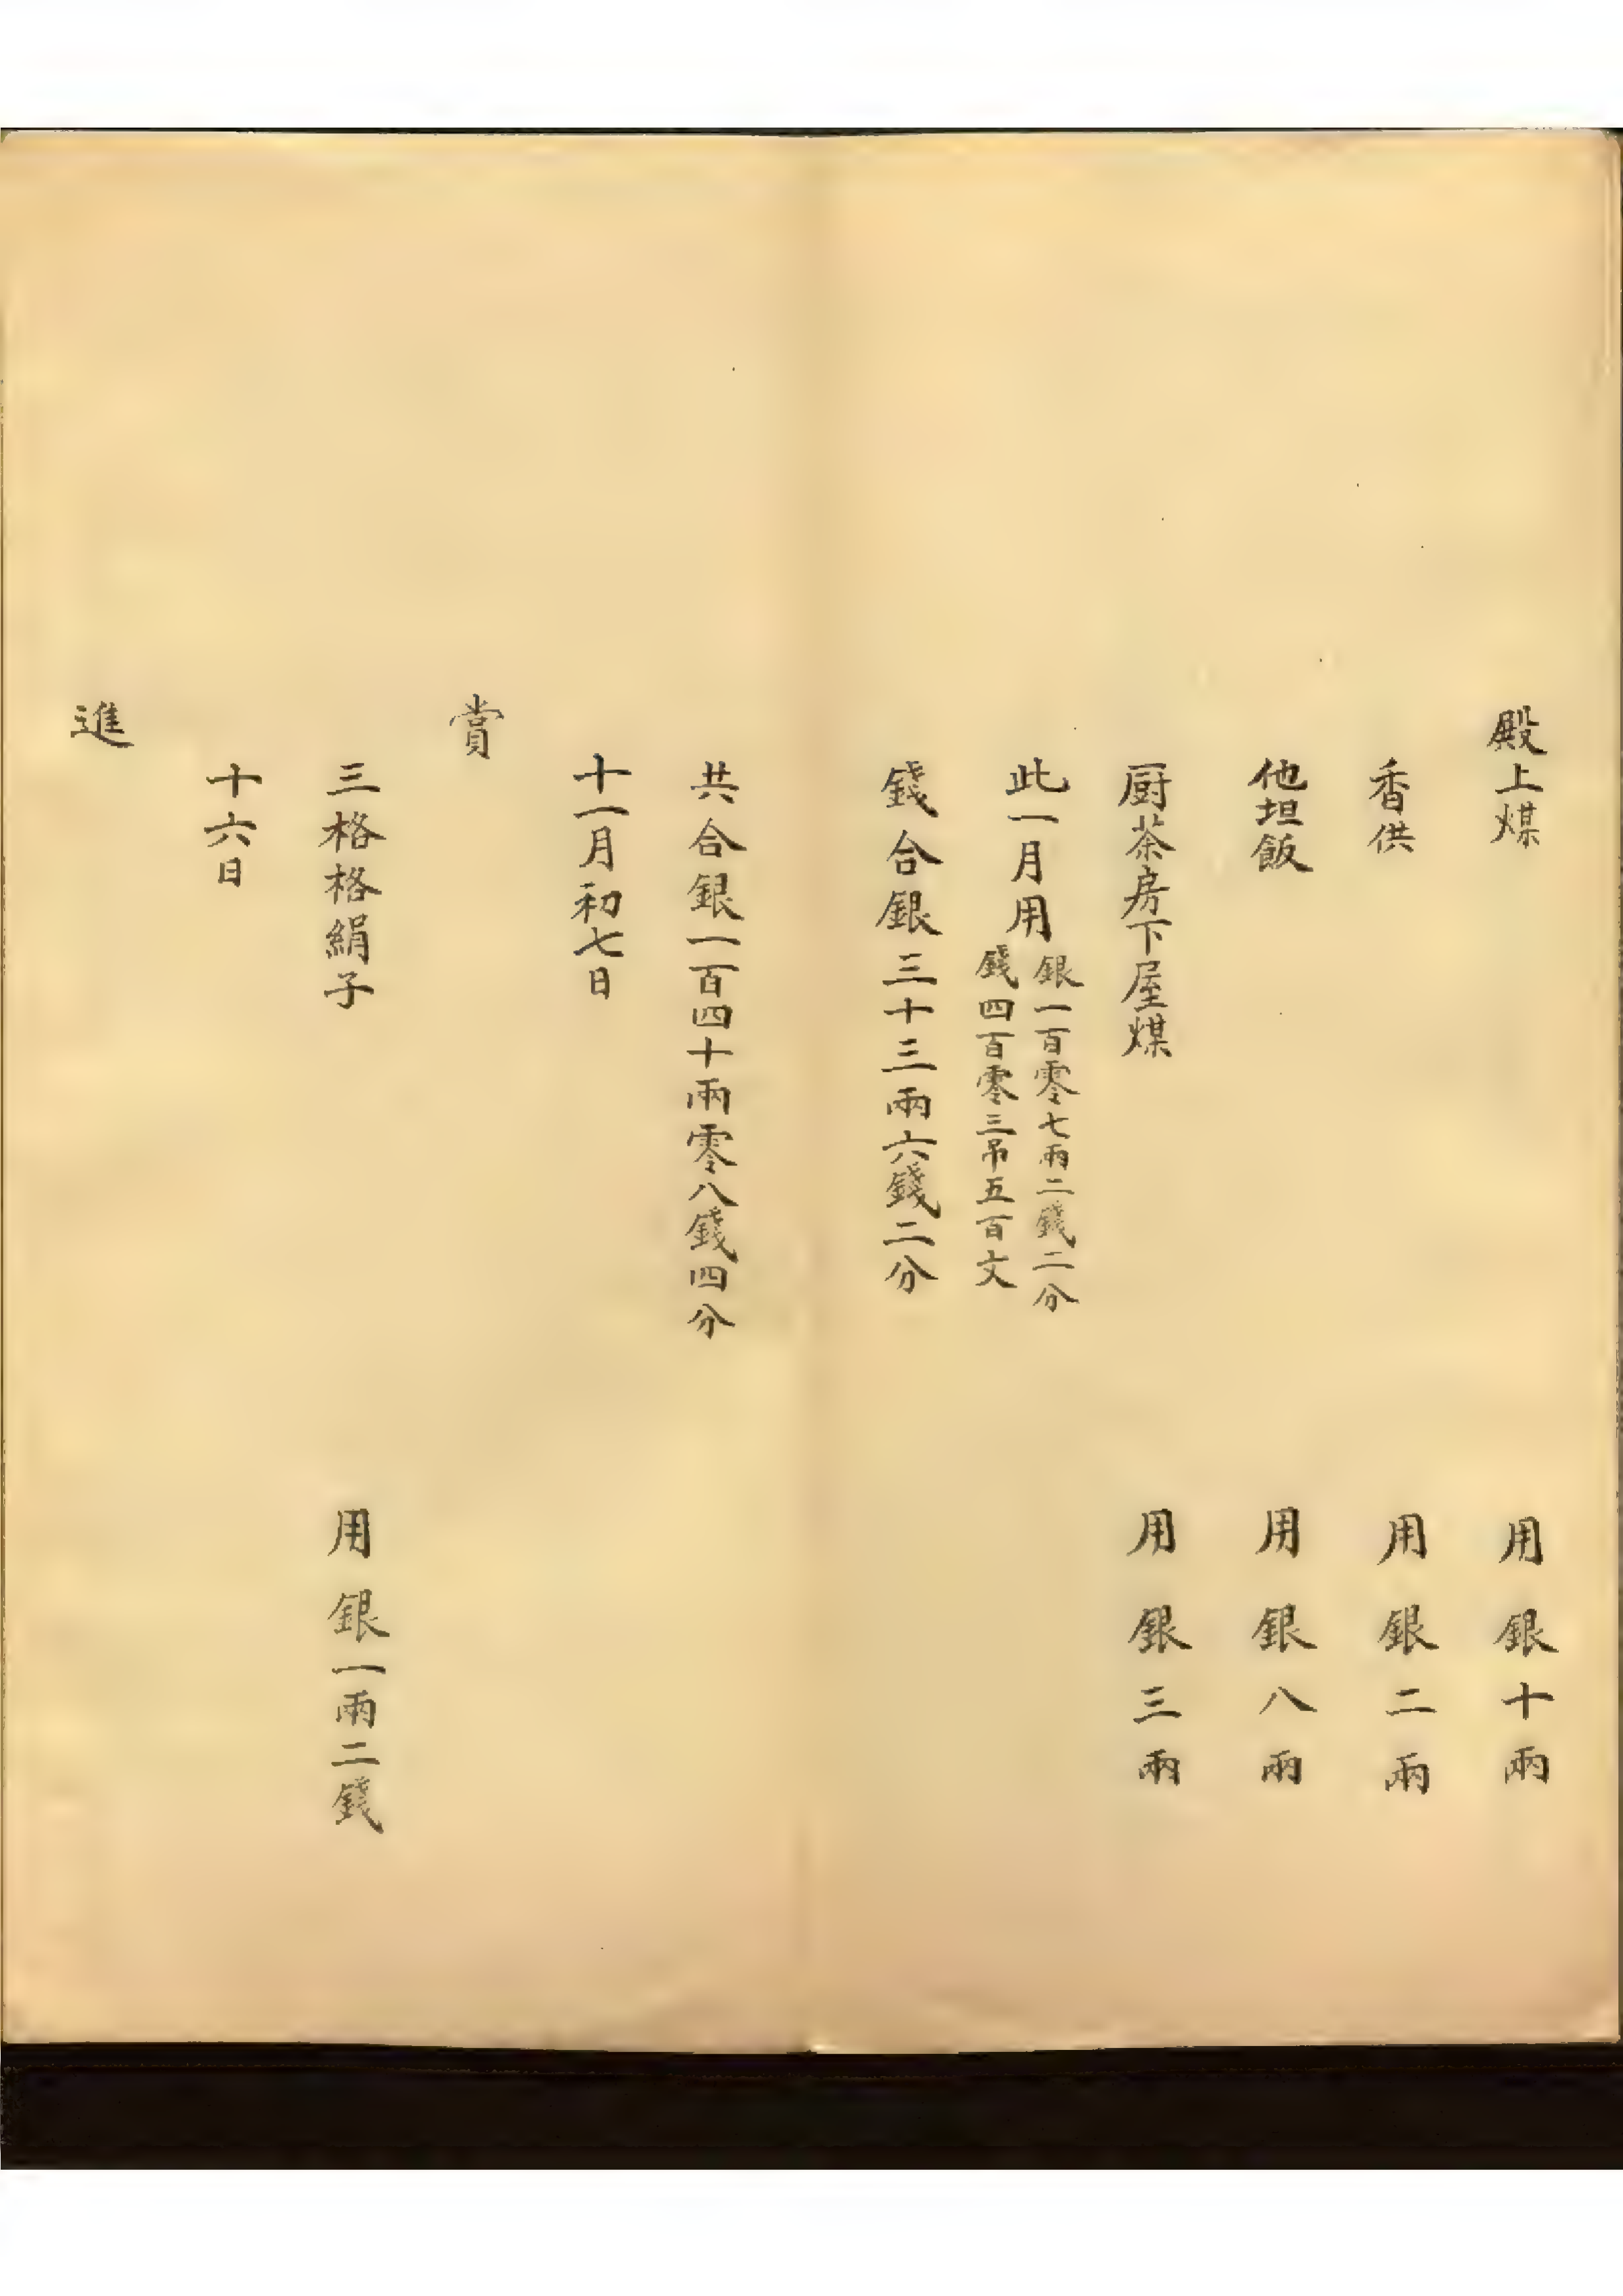 殿上煤　用銀十兩
香供　用銀二兩
他坦飯　用銀八兩
厨茶房下屋煤　用銀三兩
此一月用
銀一百零七兩二錢二分
錢四百零三吊五百文
錢合銀三十三兩六錢二分
共合銀一百四十兩零八錢四分
十一月初七日
賞
三格格絹子　用銀一兩二錢
十六日
進